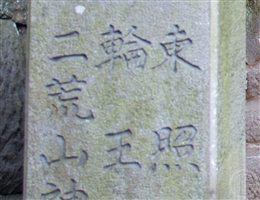 東照
輪王
二荒山神